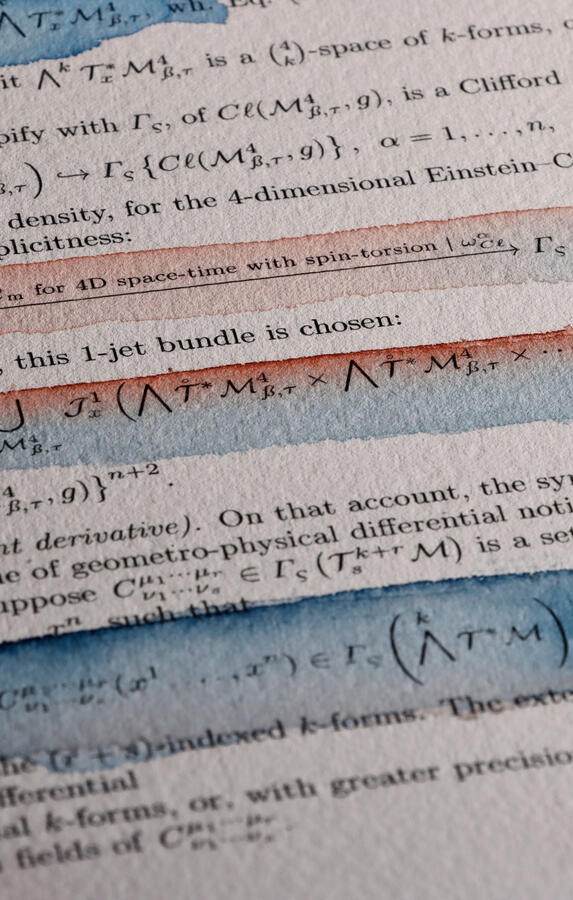 ⋀ T*ₓ M⁴_{ß,τ}, wh. Eq. (
it ⋀ᵏ T*ₓ M⁴_{ß,τ} is a (⁴ₖ)-space of k-forms,
pify with Γ_ς, of Cℓ(M⁴_{ß,τ}, g), is a Clifford
ß,τ) ↪ Γ_ς{Cℓ(M⁴_{ß,τ}, g)}, α = 1, . . . , n,
density, for the 4-dimensional Einstein–C
plicitness:
m for 4D space-time with spin-torsion | ω^α_{Cℓ} ⟶ Γ_ς
, this 1-jet bundle is chosen:
⋃_{M⁴_{ß,τ}} J¹ₓ (⋀ T̊* M⁴_{ß,τ} × ⋀ T̊* M⁴_{ß,τ} × · ·
⁴_{ß,τ}, g)}ⁿ⁺².
nt derivative). On that account, the syn
ne of geometro-physical differential noti
uppose C^{μ₁···μᵣ}_{ν₁···νₛ} ∈ Γ_ς(T^{k+r}_s M) is a set
xⁿ, such that
C^{μ₁···μᵣ}_{ν₁···νₛ}(x¹, . . . , xⁿ) ∈ Γ_ς (⋀ᵏ T* M)
he (r + s)-indexed k-forms. The exte
fferential
al k-forms, or, with greater precision
fields of C^{μ₁···μᵣ}_{ν₁···νₛ}.